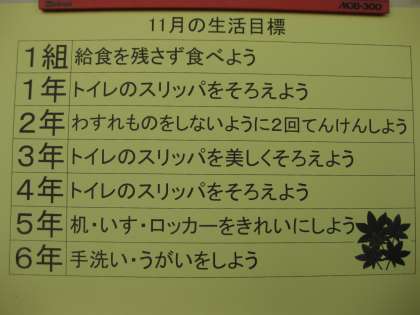 MCB-300
11月の生活目標
1組 給食を残さず食べよう
1年 トイレのスリッパをそろえよう
2年 わすれものをしないように2回てんけんしよう
3年 トイレのスリッパを美しくそろえよう
4年 トイレのスリッパをそろえよう
5年 机・いす・ロッカーをきれいにしよう
6年 手洗い・うがいをしよう